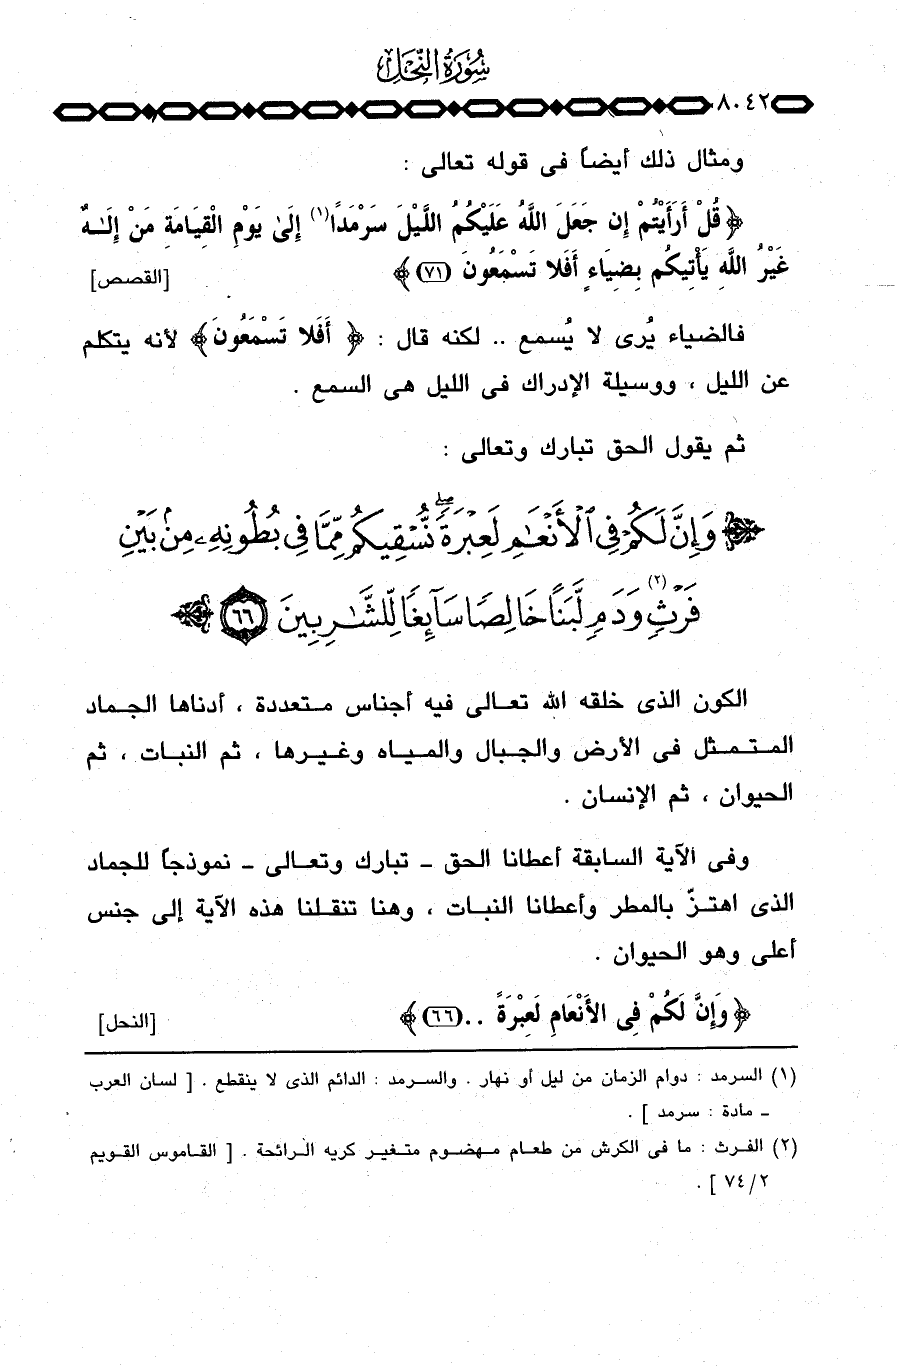 سُورَةُ النَّحْلِ
٨٠٤٢
ومثال ذلك أيضاً فى قوله تعالى :
﴿ قُلْ أَرَأَيْتُمْ إِن جَعَلَ اللَّهُ عَلَيْكُمُ اللَّيْلَ سَرْمَدًا(١) إِلَىٰ يَوْمِ الْقِيَامَةِ مَنْ إِلَـٰهٌ
غَيْرُ اللَّهِ يَأْتِيكُم بِضِيَاءٍ أَفَلا تَسْمَعُونَ (٧١) ﴾ [القصص]
فالضياء يُرى لا يُسمع .. لكنه قال : ﴿ أَفَلا تَسْمَعُونَ ﴾ لأنه يتكلم
عن الليل ، ووسيلة الإدراك فى الليل هى السمع .
ثم يقول الحق تبارك وتعالى :
﴿ وَإِنَّ لَكُمْ فِى ٱلْأَنْعَٰمِ لَعِبْرَةً ۖ نُّسْقِيكُم مِّمَّا فِى بُطُونِهِۦ مِنۢ بَيْنِ
فَرْثٍ(٢) وَدَمٍ لَّبَنًا خَالِصًا سَآئِغًا لِّلشَّٰرِبِينَ ٦٦ ﴾
الكون الذى خلقه الله تعالى فيه أجناس متعددة ، أدناها الجماد
المتمثل فى الأرض والجبال والمياه وغيرها ، ثم النبات ، ثم
الحيوان ، ثم الإنسان .
وفى الآية السابقة أعطانا الحق ـ تبارك وتعالى ـ نموذجاً للجماد
الذى اهتزّ بالمطر وأعطانا النبات ، وهنا تنقلنا هذه الآية إلى جنس
أعلى وهو الحيوان .
﴿ وَإِنَّ لَكُمْ فِى الأَنْعَامِ لَعِبْرَةً ..(٦٦) ﴾ [النحل]
(١) السرمد : دوام الزمان من ليل أو نهار . والسرمد : الدائم الذى لا ينقطع . [ لسان العرب
ـ مادة : سرمد ] .
(٢) الفرث : ما فى الكرش من طعام مهضوم متغير كريه الرائحة . [ القاموس القويم
٧٤/٢ ] .